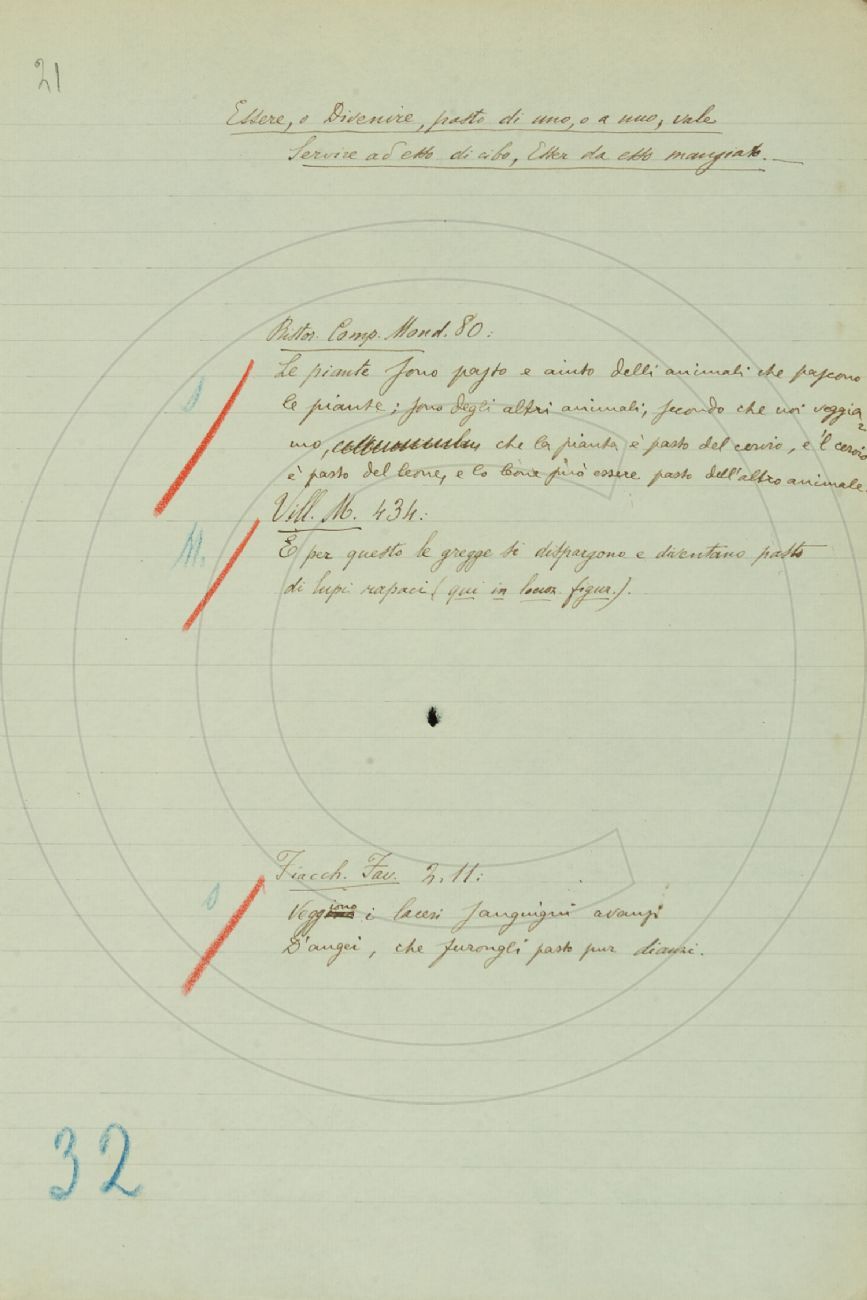 21
Essere, o Divenire, pasto di uno, o a uno, vale
Servire ad esso di cibo, Esser da esso mangiato.
Ristor. Comp. Mond. 80:
Le piante sono pasto e aiuto delli animali che pascono
le piante; sono degli altri animali, secondo che noi veggia=
mo, che la pianta è pasto del cervio, e 'l cervio
è pasto del leone, e lo leone può essere pasto dell'altro animale.
Vill. M. 434:
M.
E per questo le gregge si dispargono e diventano pasto
di lupi rapaci (qui in locuz. figur.).
Fiacch. Fav. 2. 11:
Veggiono i laceri sanguigni avanzi
D'augei, che furongli pasto pur dianzi.
32